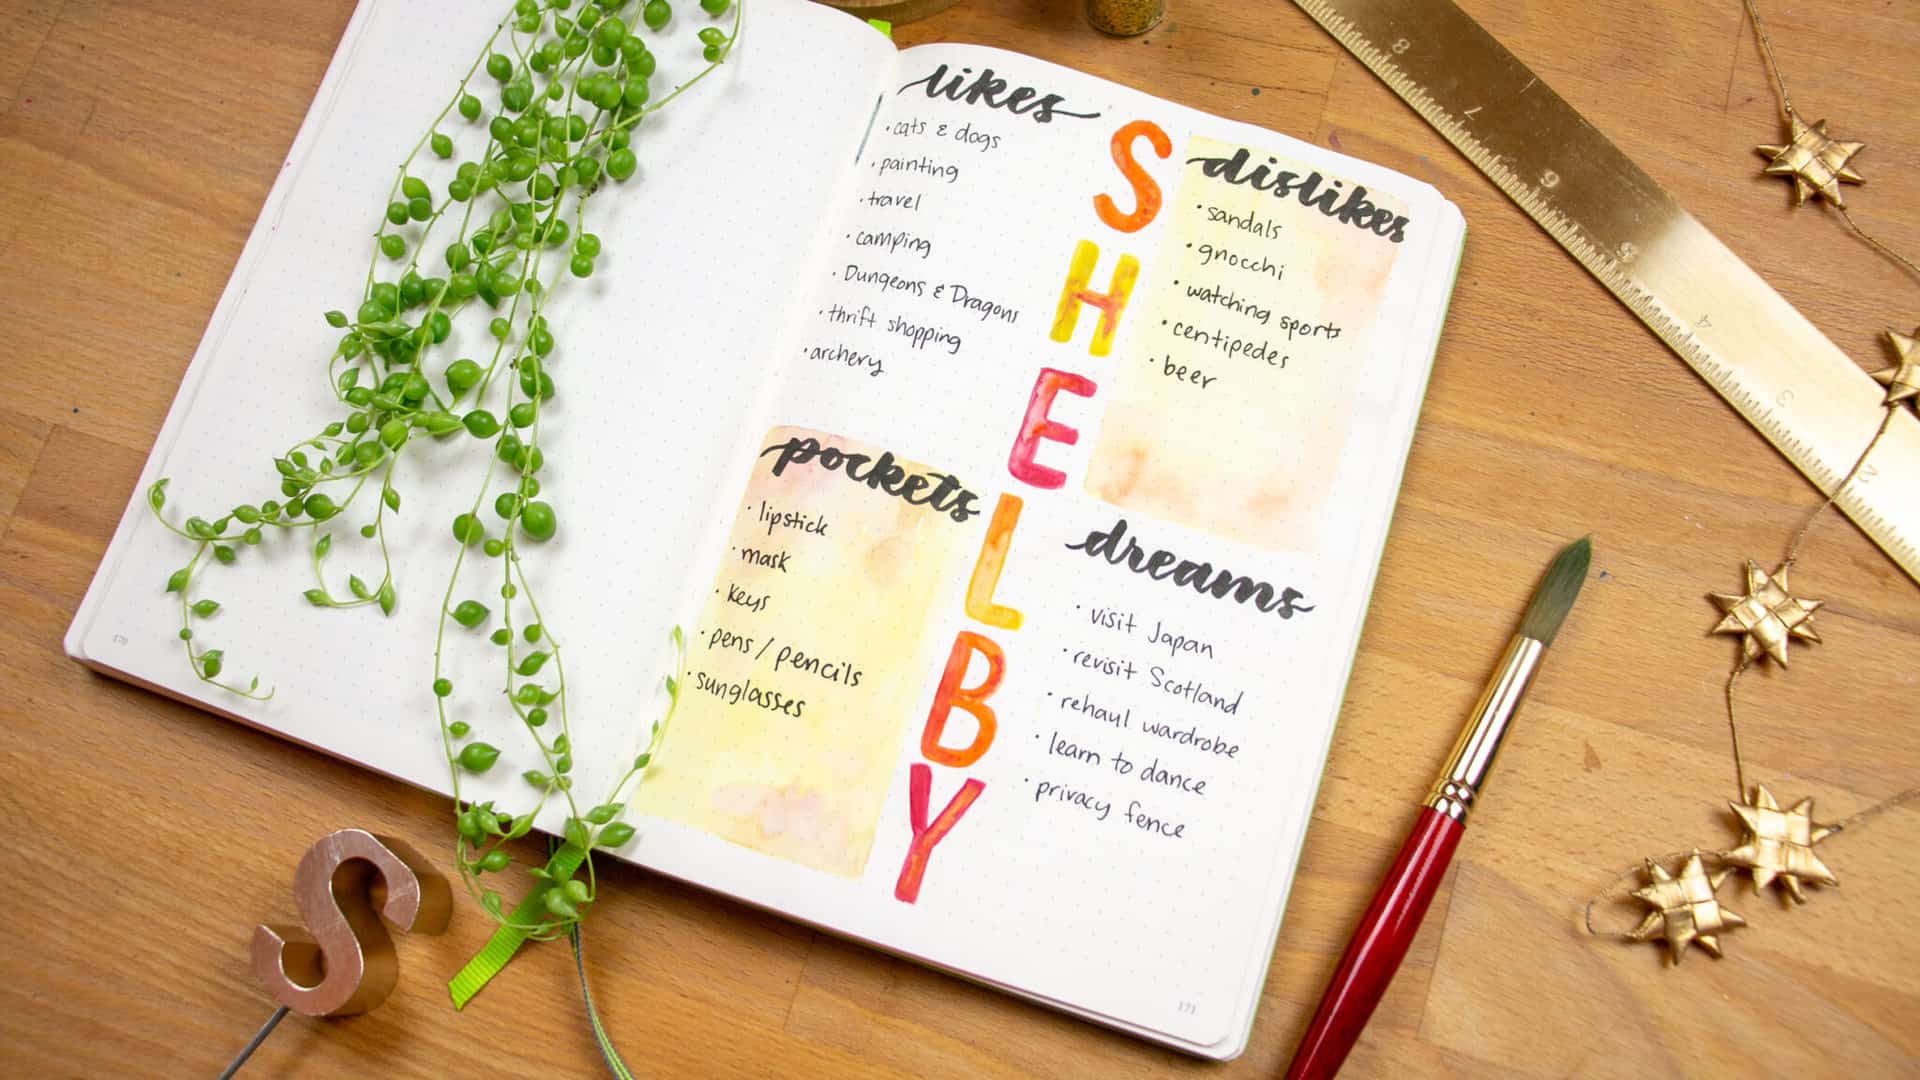 likes
· cats & dogs
· painting
· travel
· camping
· Dungeons & Dragons
· thrift shopping
· archery
SHELBY
dislikes
· sandals
· gnocchi
· watching sports
· centipedes
· beer
pockets
· lipstick
· mask
· keys
· pens / pencils
· sunglasses
dreams
· visit Japan
· revisit Scotland
· rehaul wardrobe
· learn to dance
· privacy fence
170
171
S
8
7
6
5
4
3
2